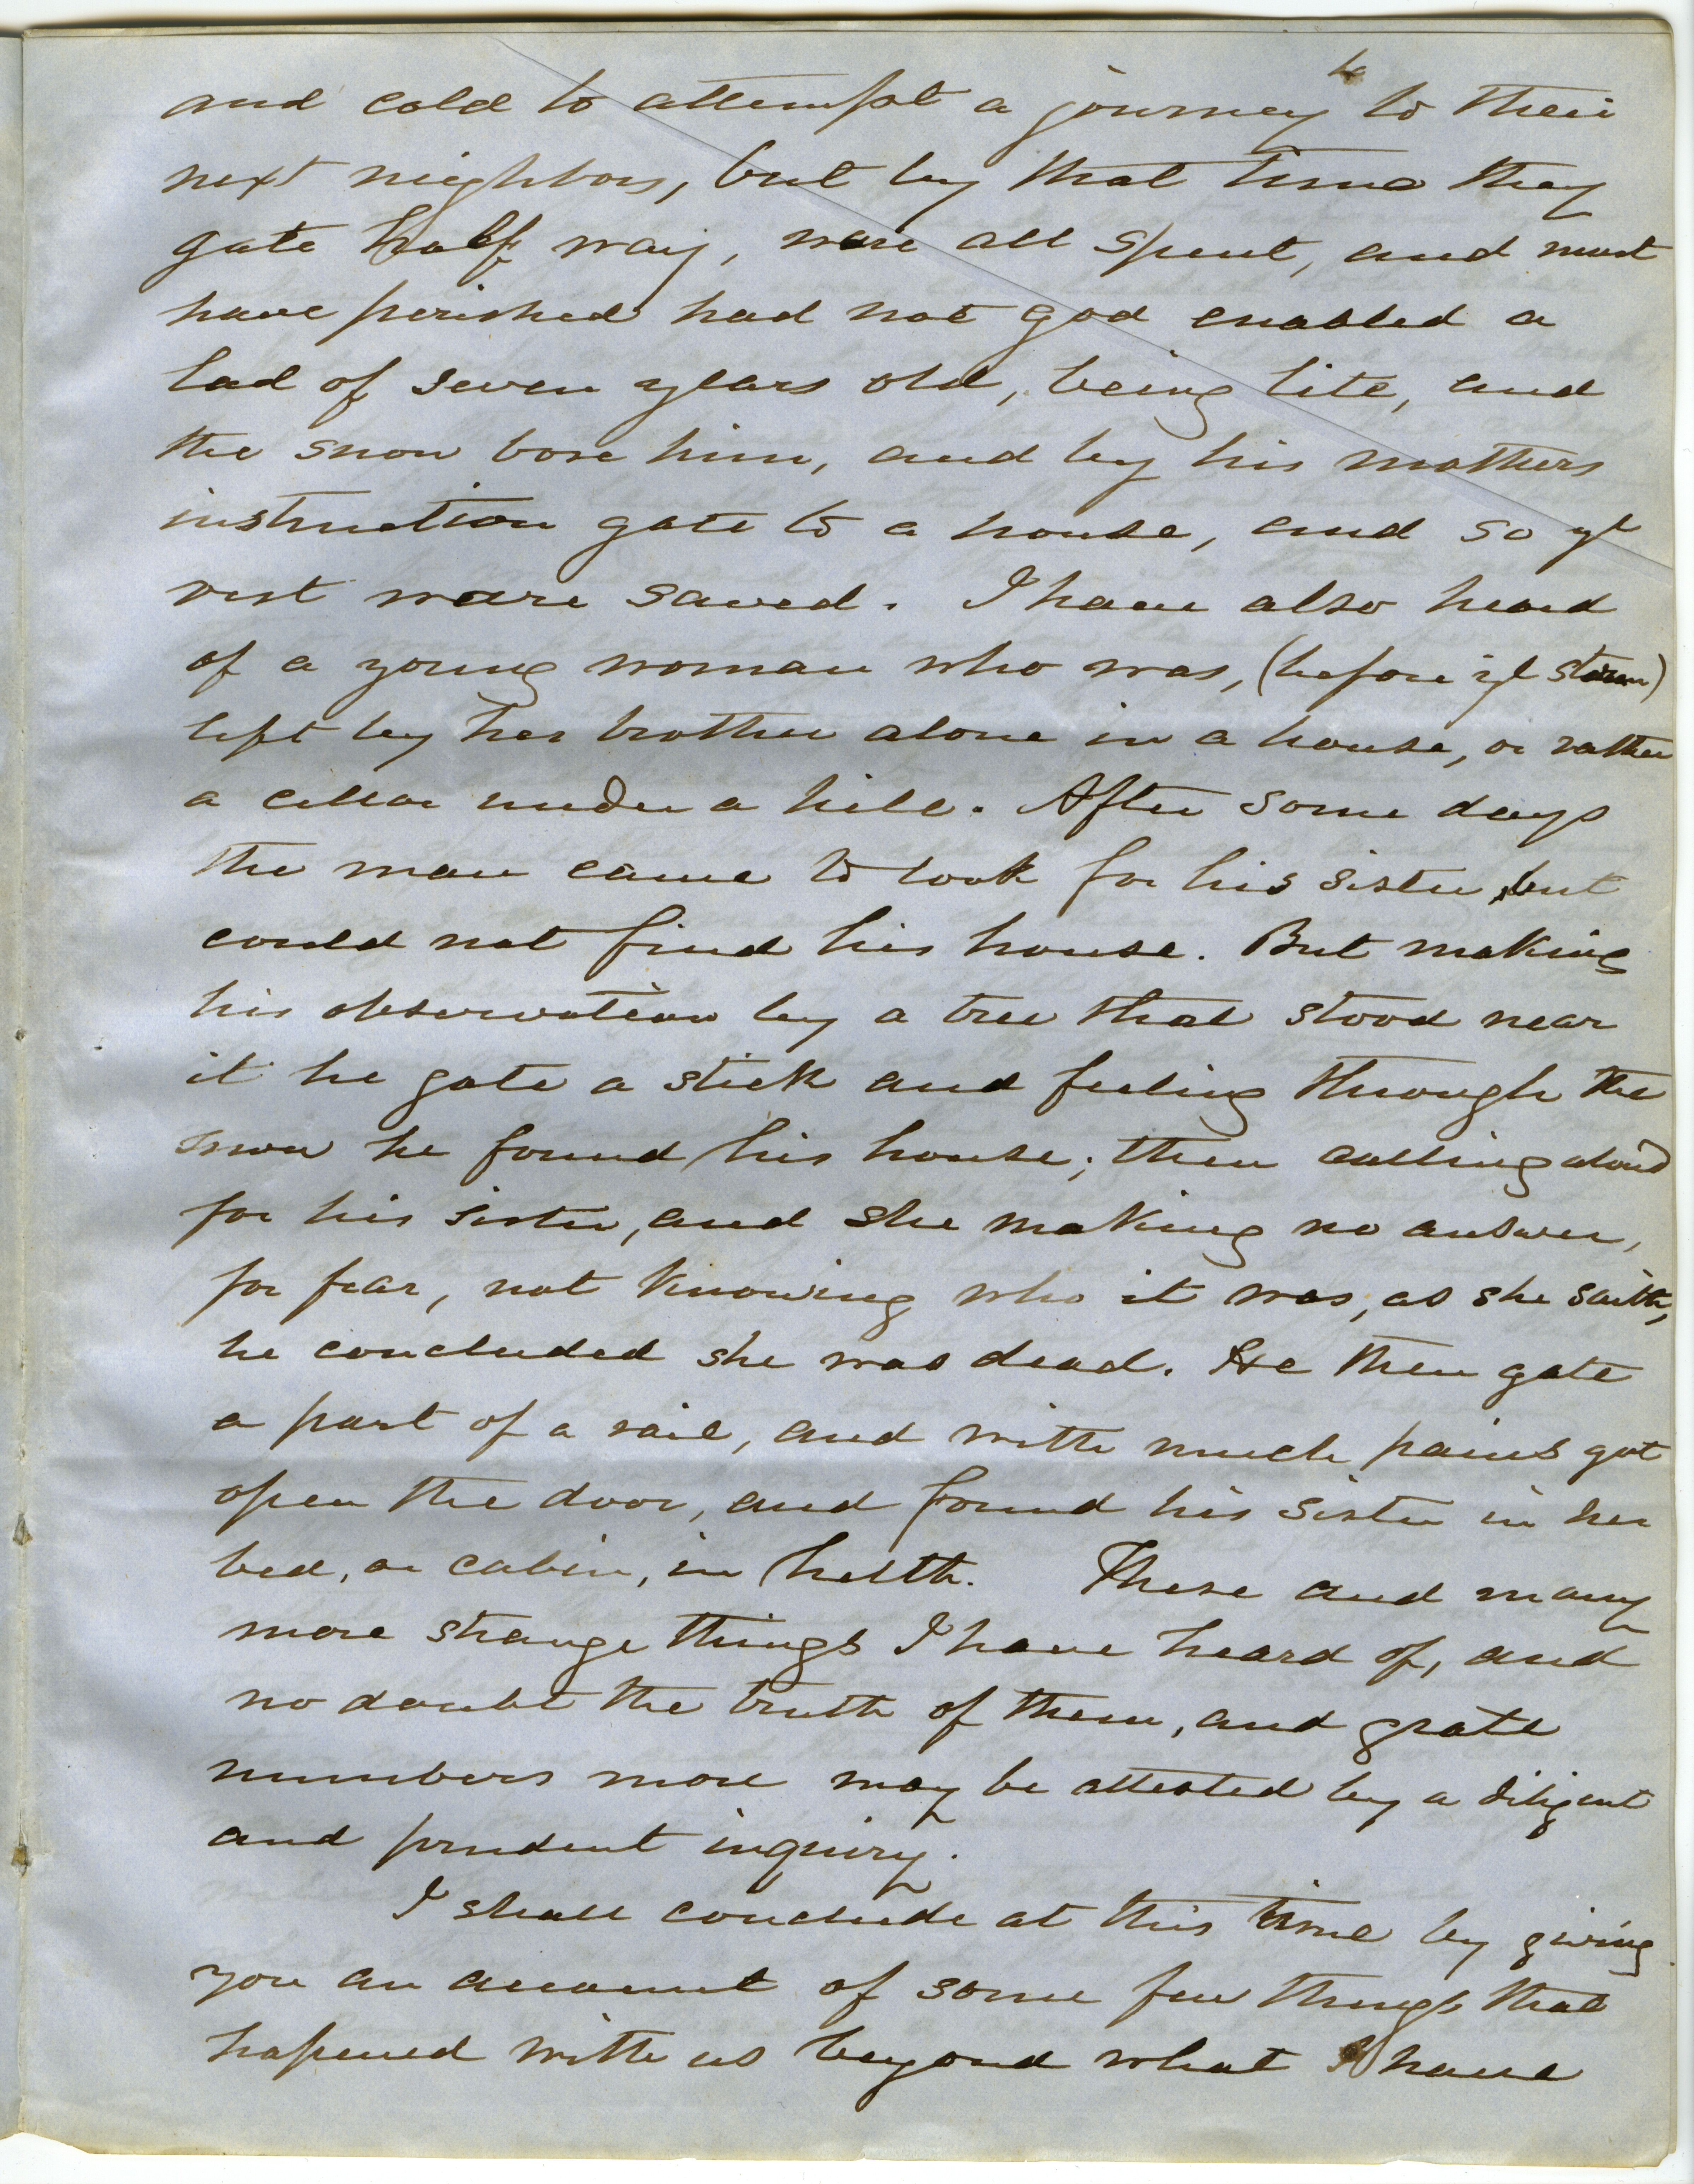 and cold to attempt a journey to their
next neighbors, but by that time they
gate half way, ware all spent, and must
have perished had not god enabled a
lad of seven years old, being lite, and
the snow bore him, and by his mothers
instruction gate to a house, and so ye
rest ware saved. I have also heard
of a young woman who was, (before ye storm)
left by her brother alone in a house, or rather
a cellar under a hill. After some days
the man came to look for his sister, but
could not find his house. But making
his observation by a tree that stood near
it he gate a stick and feeling through the
snow he found his house; then calling aloud
for his sister, and she making no answer,
for fear, not knowing who it was, as she saith,
he concluded she was dead. He then gate
a part of a rail, and with much pains got
open the door, and found his sister in her
bed, or cabin, in helth. These and many
more strange things I have heard of, and
no doubt the truth of them, and grate
numbers more may be attested by a diligent
and prudent inquiry.
I shall conclude at this time by giving
you an account of some few things that
hapened with us beyond what I have